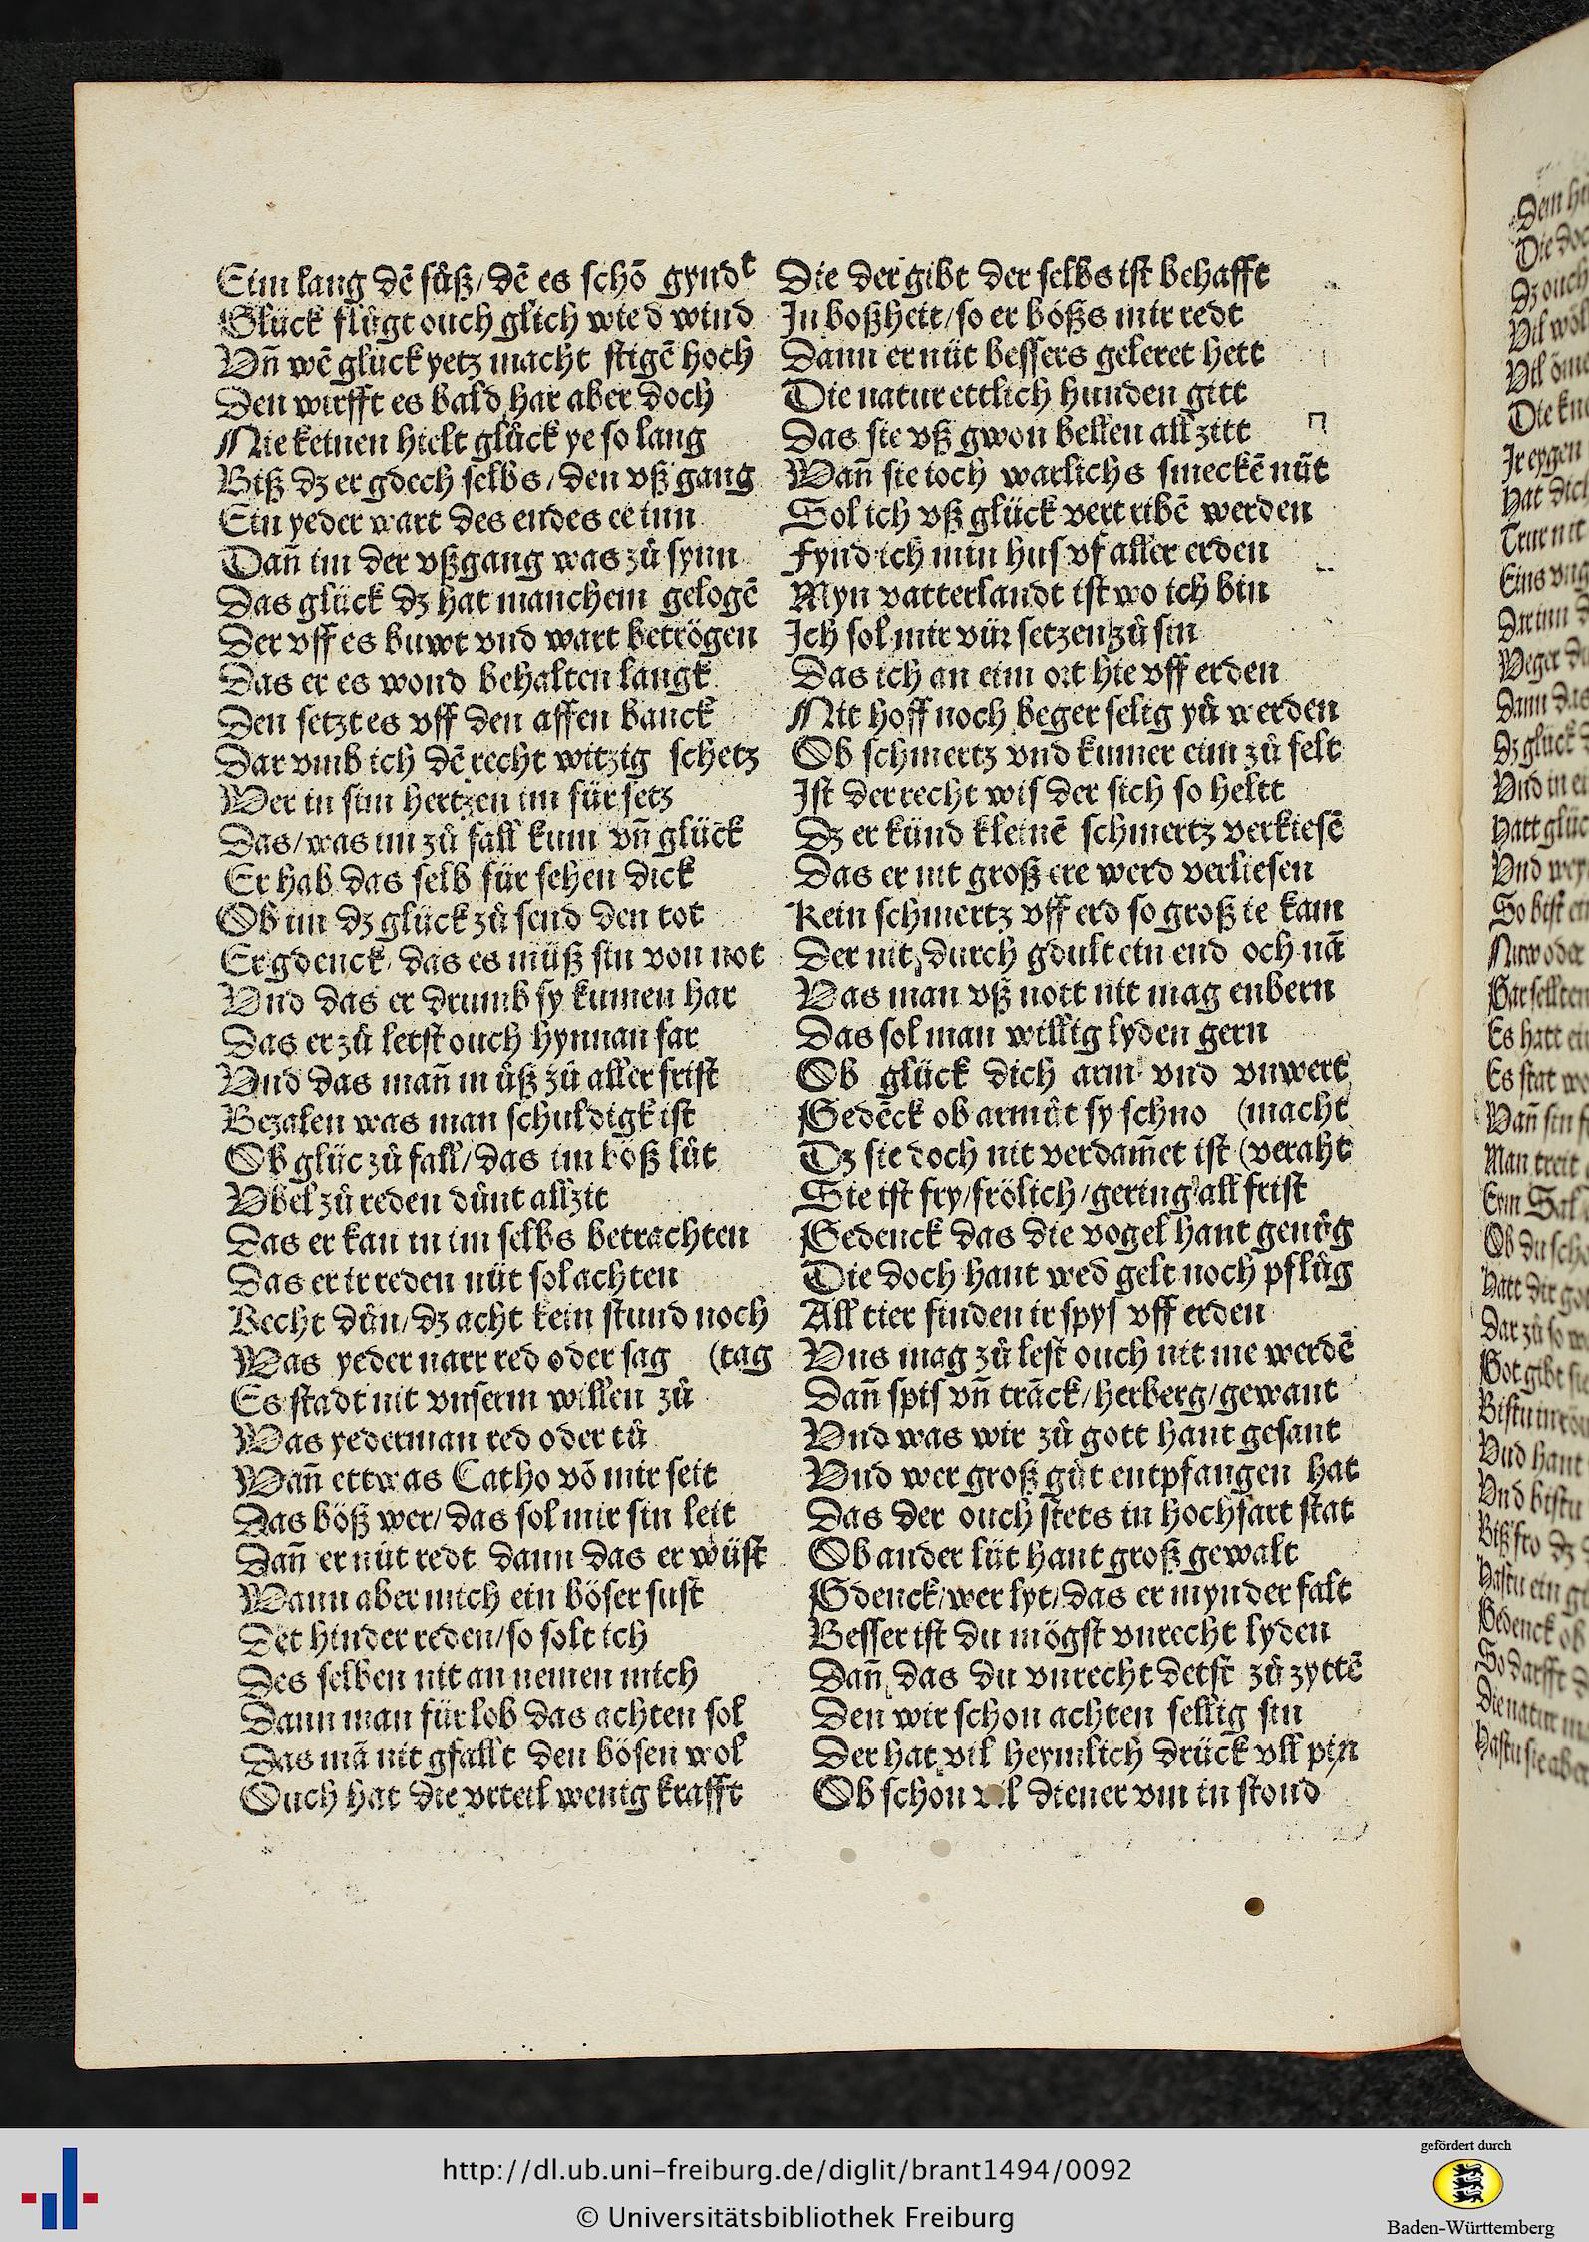 Eim lang dē fůß/ dē es schō gyndt
Glück flügt ouch glich wie d wind
Vn̄ wē glück yetz macht stigē hoch
Den wirfft es bald har aber doch
Nie keinen hielt glück ye so lang
Biß dz er gdech selbs/ den vß gang
Ein yeder wart des endes ee inn
Dan̄ im der vßgang was zů synn
Das glück dz hat manchem gelogē
Der vff es buwt vnd wart betrögen
Das er es wond behalten langk
Den setzt es vff den affen banck
Dar vmb ich dē recht witzig schetz
Wer in sim hertzen im für setz
Das/ was im zů fall kum vn̄ glück
Er hab das selb für sehen dick
Ob im dz glück zů send den tot
Er gdenck/ das es müß sin von not
Vnd das er drumb sy kumen har
Das er zů letst ouch hynnan far
Vnd das man̄ m ůß zů aller frist
Bezalen was man schuldigk ist
Ob glüc zů fall/ das im böß lüt
Vbel zů reden důnt allzit
Das er kan in im selbs betrachten
Das er ir reden nüt sol achten
Recht důn/ dz acht kein stund noch
Was yeder narr red oder sag (tag
Es stadt nit vnserm willen zů
Was yederman red oder tů
Wan̄ ettwas Catho vō mir seit
Das böß wer/ das sol mir sin leit
Dan̄ er nüt redt dann das er wüst
Wann aber mich ein böser sust
Det hinder reden/ so solt ich
Des selben nit an nemen mich
Dann man für lob das achten sol
Das mā nit gfallt den bösen wol
Ouch hat die vrteil wenig krafft
Die der gibt der selbs ist behafft
In boßheit/ so er bößs mir redt
Dann er nüt bessers geleret hett
Die natur ettlich hunden gitt
Das sie vß gwon bellen all zitt
Wan̄ sie ioch warlichs smeckē nüt
Sol ich vß glück vert ribē werden
Fynd ich min hus vf aller erden
Myn vatterlandt ist wo ich bin
Ich sol mir vür setzen zů sin
Das ich an eim ort hie vff erden
Nit hoff noch beger selig yů werden
Ob schmertz vnd kumer eim zů felt
Ist der recht wis der sich so heltt
Dz er künd kleinē schmertz verkiesē
Das er nit groß ere werd verliesen
Kein schmertz vff erd so groß ie kam
Der nit durch gdult ein end och nā
Was man vß nott nit mag enbern
Das sol man willig lyden gern
Ob glück dich arm vnd vnwert
Gedēck ob armůt sy schno (macht
Dz sie doch nit verdam̄et ist (veraht
Sie ist fry/ frölich/ gering all frist
Gedenck das die vogel hant genůg
Die doch hant wed gelt noch pflůg
All tier finden ir spys vff erden
Vns mag zů lest ouch nit me werdē
Dan̄ spis vn̄ trāck/ herberg/ gewant
Vnd was wir zů gott hant gesant
Vnd wer groß gůt entpfangen hat
Das der ouch stets in hochfart stat
Ob ander lüt hant groß gewalt
Gdenck/ wer lyt/ das er mynder falt
Besser ist du mögst vnrecht lyden
Dan̄ das du vnrecht detst zů zyttē
Den wir schon achten sellig sin
Der hat vil heymlich drück vll pin
Ob schon vil diener vm in stond
http://dl.ub.uni-freiburg.de/diglit/brant1494/0092
© Universitätsbibliothek Freiburg
gefördert durch
Baden-Württemberg